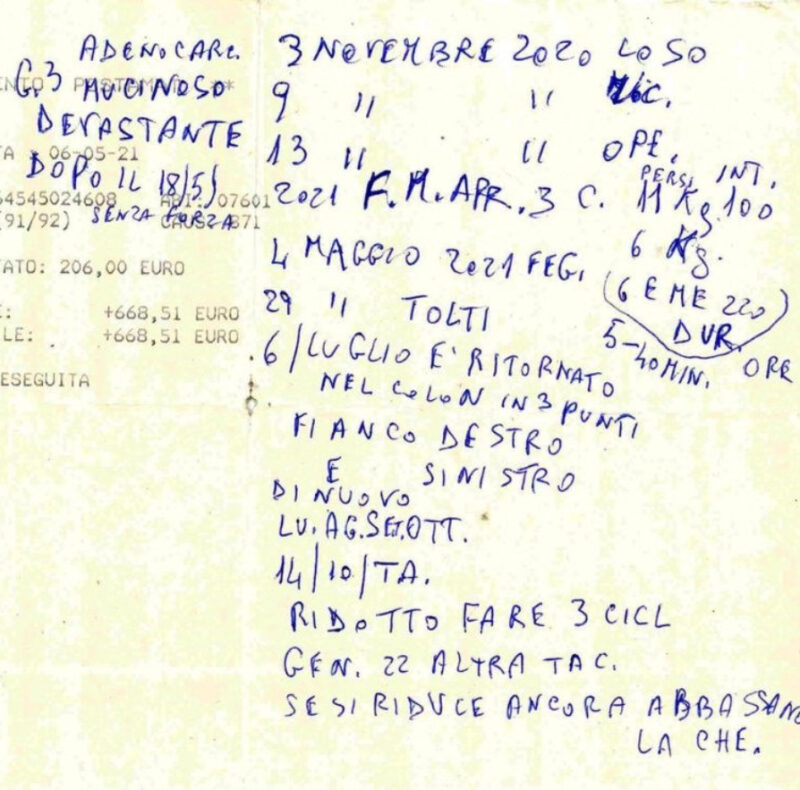 ADENOCARC.
G.3 MUCINOSO
DEVASTANTE
DOPO IL 18/5/
SENZA FORZA
06-05-21
64545024608 ABI: 07601
(91/92) CAUS: 871
ATO: 206,00 EURO
E: +668,51 EURO
LE: +668,51 EURO
ESEGUITA
3 NOVEMBRE 2020 LO SO
9 " "
13 " " OPE.
PERSI INT.
2021 F.M.APR. 3 C. 11 Kg. 100
4 MAGGIO 2021 FEG. 6 Kg.
29 " TOLTI
(6 E ME 220
DUR. ORE
5-40 MIN.
6/LUGLIO E' RITORNATO
NEL COLON IN 3 PUNTI
FIANCO DESTRO
E SINISTRO
DI NUOVO
LU. AG.SET.OTT.
14/10/TA.
RIDOTTO FARE 3 CICL
GEN. 22 ALTRA TAC.
SE SI RIDUCE ANCORA ABBASSANO
LA CHE.